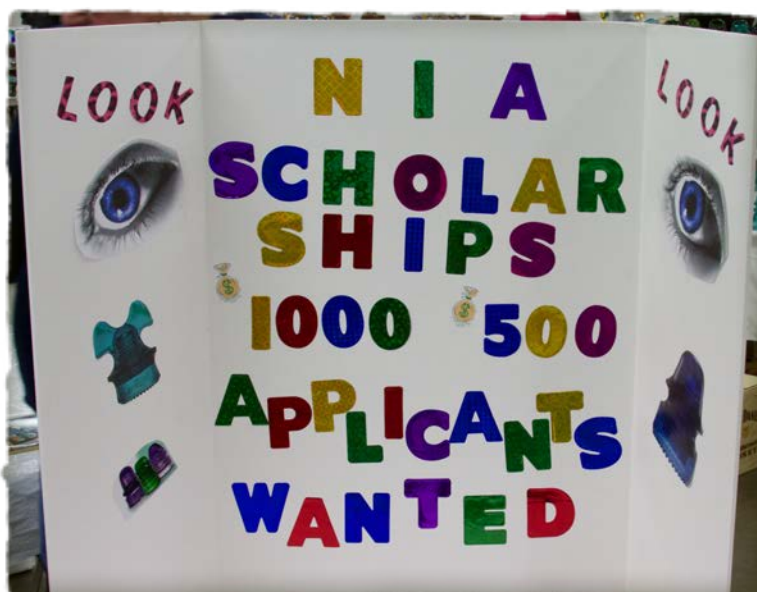 LOOK
NIA
LOOK
SCHOLAR
SHIPS
$ 1000 $ 500
APPLICANTS
WANTED